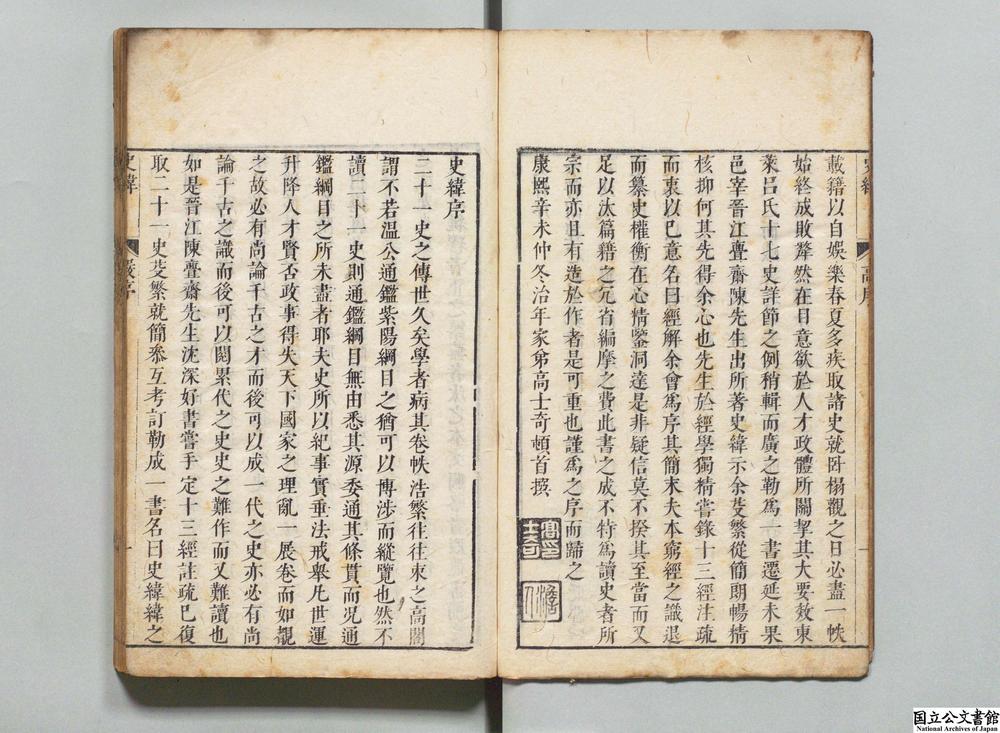 載籍以自娛樂春夏多疾取諸史就臥榻觀之日必盡一帙
始終成敗犖然在目意欲於人才政體所關挈其大要效東
萊呂氏十七史詳節之例稍輯而廣之勒爲一書遷延未果
邑宰晉江壘齋陳先生出所著史緯示余芟繁從簡朗暢精
核抑何其先得余心也先生於經學獨精嘗錄十三經注疏
而衷以己意名曰經解余曾爲序其簡末夫本窮經之識退
而纂史權衡在心精鑒洞達是非疑信莫不揆其至當而又
足以汰篇籍之冗省編摩之費此書之成不特爲讀史者所
宗而亦且有造於作者是可重也謹爲之序而歸之
康熙辛未仲冬治年家弟高士奇頓首撰
史緯序
二十一史之傳世久矣學者病其卷帙浩繁往往束之高閣
謂不若溫公通鑑紫陽綱目之猶可以博涉而縱覽也然不
讀二十一史則通鑑綱目無由悉其源委通其條貫而況通
鑑綱目之所未盡者耶夫史所以紀事實垂法戒舉凡世運
升降人才賢否政事得失天下國家之理亂一展卷而如覩
之故必有尚論千古之才而後可以成一代之史亦必有尚
論千古之識而後可以閱累代之史史之難作而又難讀也
如是晉江陳壘齋先生沈深好書嘗手定十三經註疏已復
取二十一史芟繁就簡叅互考訂勒成一書名曰史緯緯之
史緯
嚴序
一
国立公文書館
National Archives of Japan